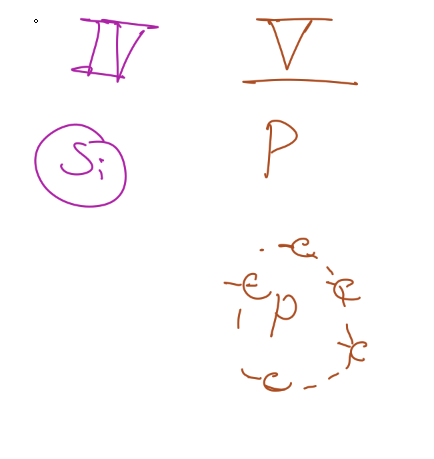 IV V
Si P
e
e e
P
e
e